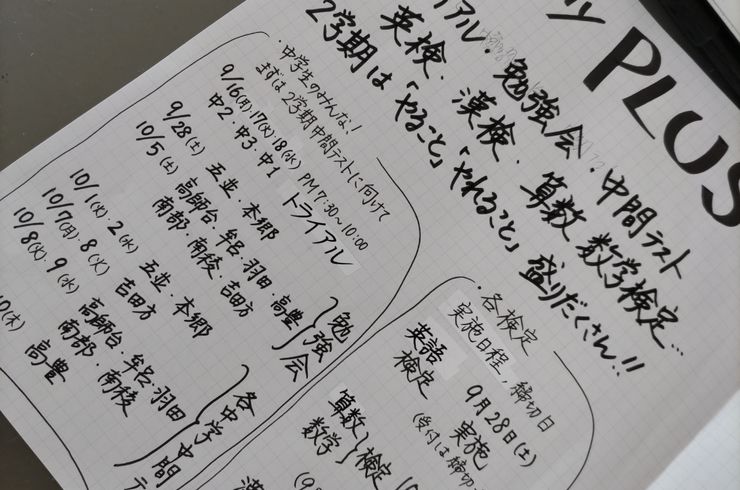 PLUS
トライアル・勉強会・中間テスト
英検・漢検・算数 数学検定…
2学期は「やること」「やれること」盛りだくさん!!
・中学生のみんな!
まずは2学期中間テストに向けて
9/16(月)17(火)18(水) PM7:30~10:00
中2・中3・中1 トライアル
9/28(土) 五並・本郷
高師台・牟呂・羽田・高豊
10/5(土) 南部・南稜・吉田方
勉強会
10/1(火)・2(水) 五並・本郷
10/7(月)・8(火) 吉田方
10/8(火)・9(水) 高師台・牟呂・羽田
南部・南稜
(木) 高豊
各中学中間テ
・各検定
実施日程、締切日
英語
検定
9月28日(土)
実施
(受付は締切
算数
数学
検定